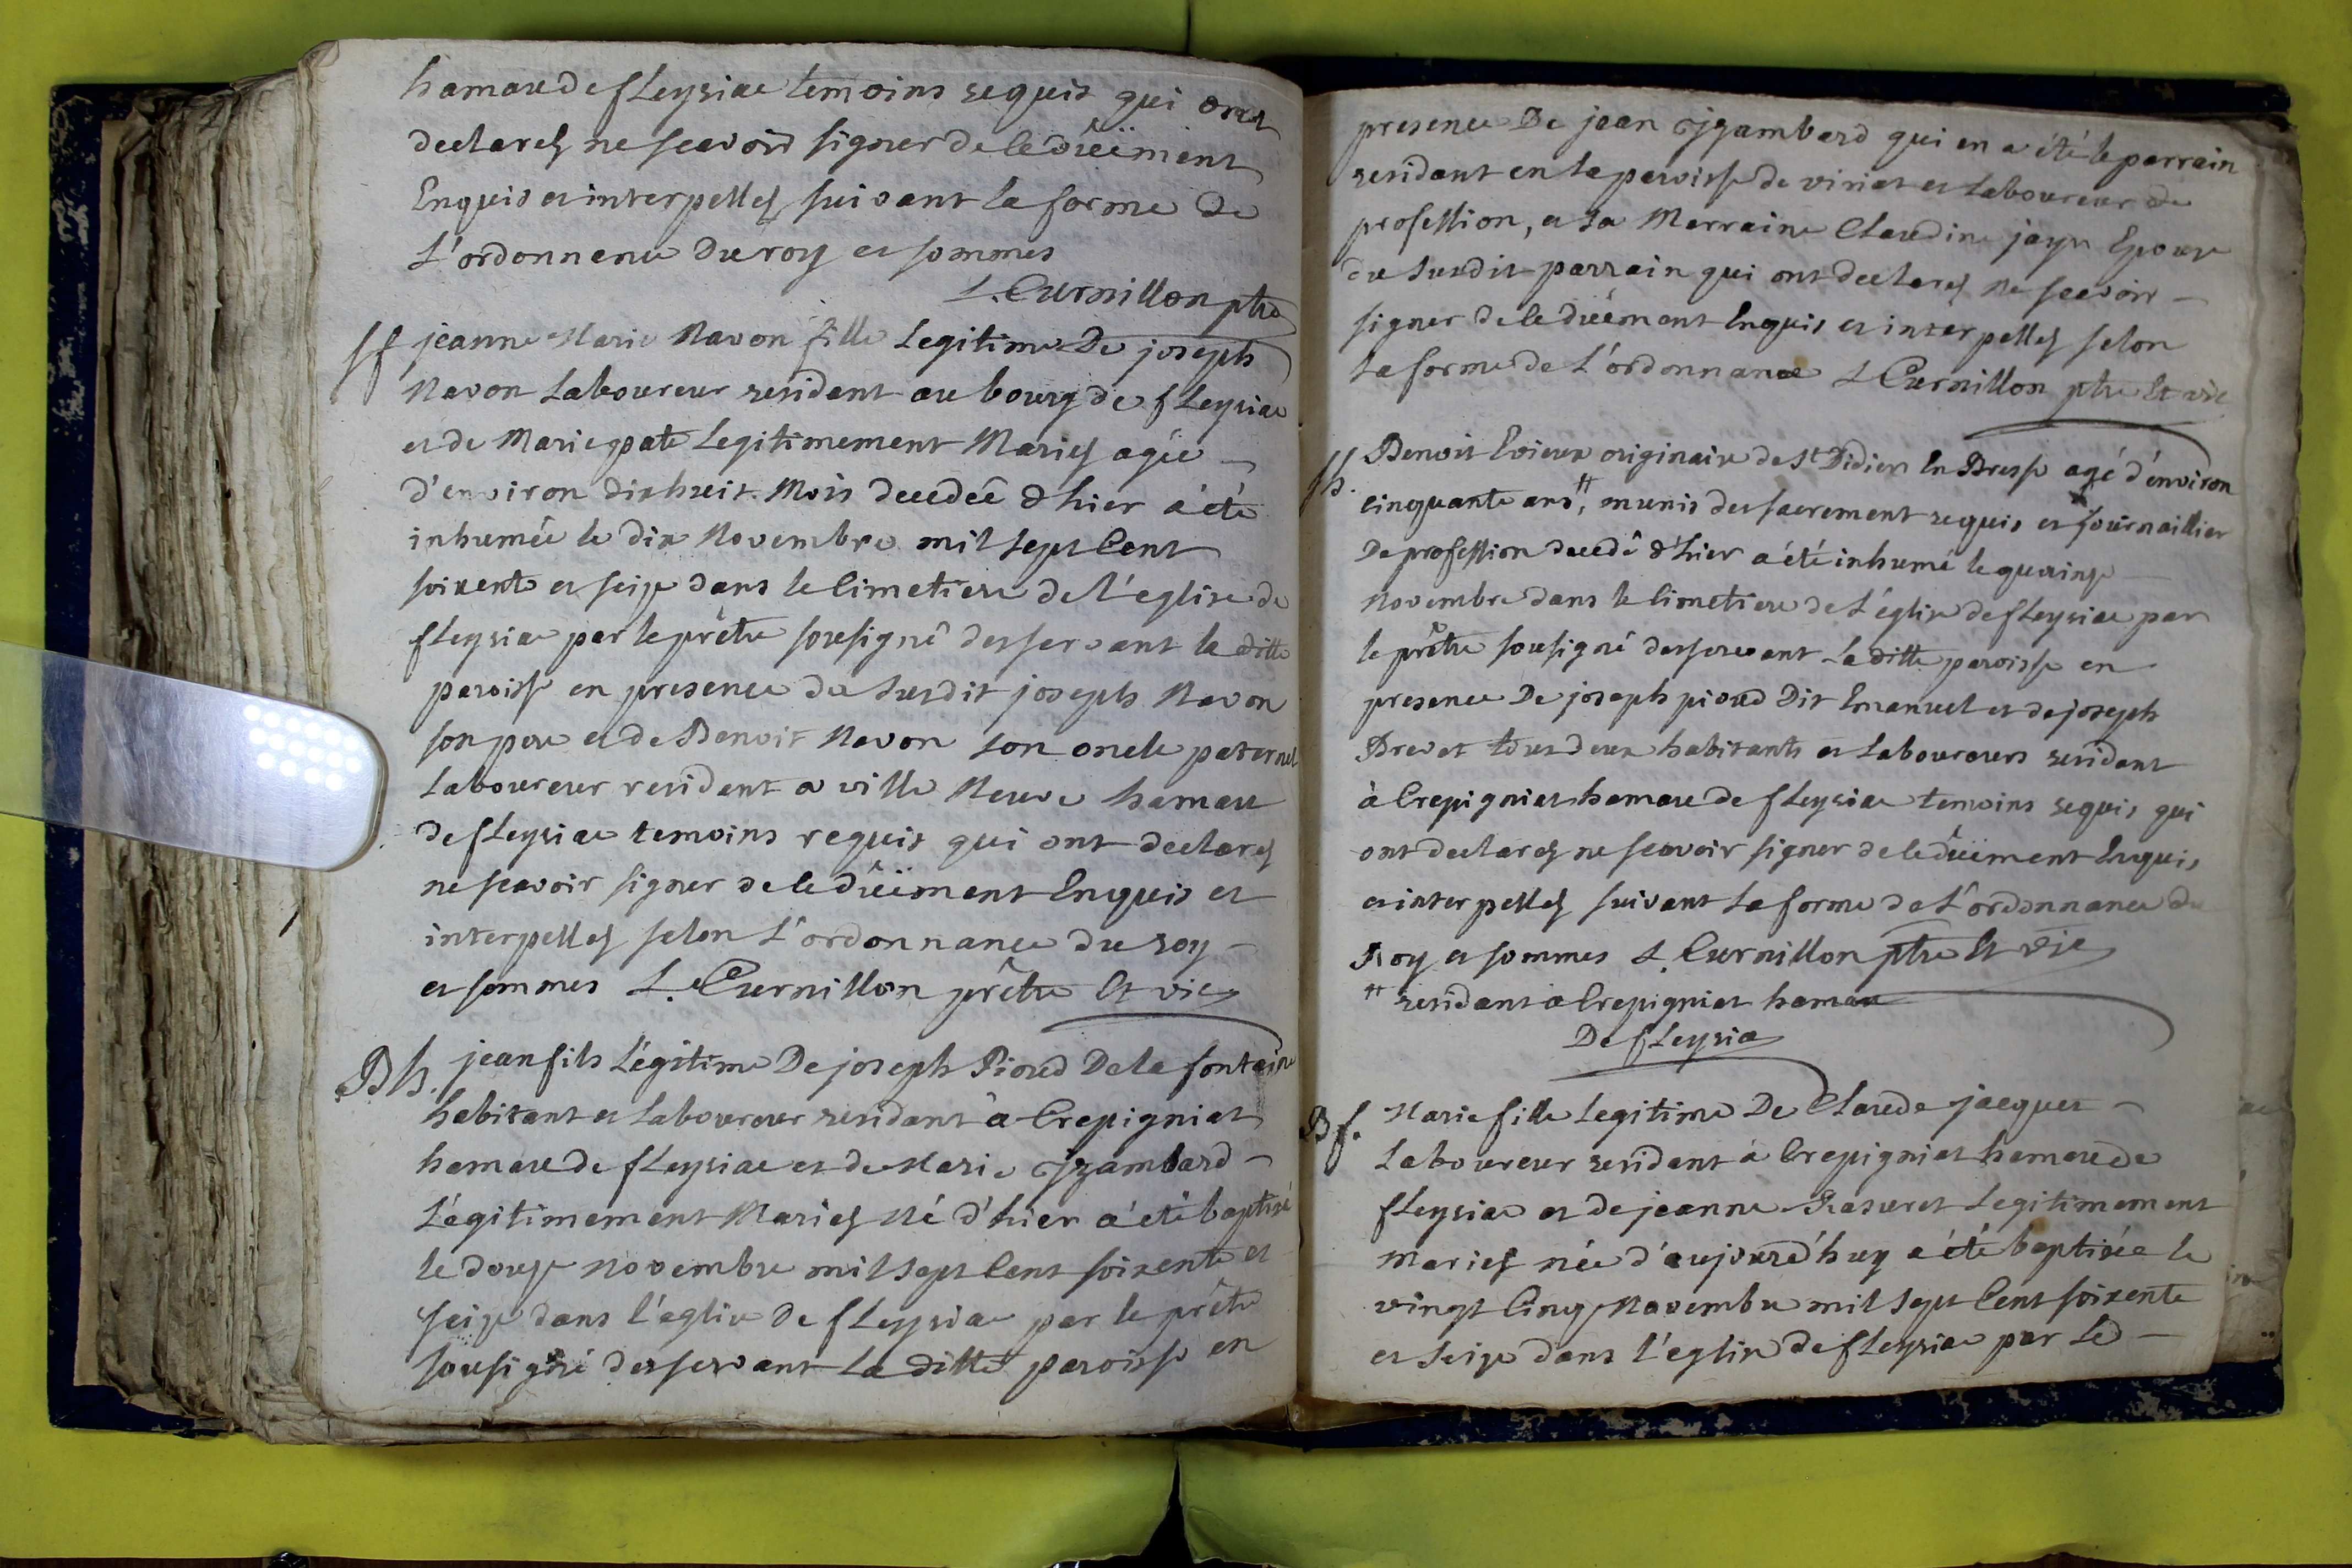 hamau de fLeyriac temoins requis qui ont
declarés ne scavoir signer de ce dûëment
Enquis et interpellés suivant la forme de
L'ordonnence du roy et sommes
L. Curnillon ptre
Sf. jeanne Marie Navon fille Legitime De joseph
Navon Laboureur resident au bourg de fLeyriac
et de Marie pate Legitimement Mariés agée
d'environ dixhuit Mois decedée d'hier a été
inhumée le dix Novembre mil sept Cent
soixente et seize dans le Cimetiere de l'eglise de
fLeyria par le prêtre sousigné desservant la ditte
paroisse en presence du susdit joseph Navon
son pere et de Benoit Navon son oncle paternel
Laboureur resident a ville Neuve hamau
de fLeyriac temoins requis qui ont declarés
ne scavoir signer de ce dûëment Enquis et
interpellés selon L'ordonnance du roy
et sommes L. Curnillon prêtre Et vic
Bh. jean fils Légitime De joseph Pioud De la fontaine
habitant et Laboureur residant à Crepigniat
hamau de fLeyriac et de Marie jzambard
Légitimement Mariés Né d'hier a été baptisé
le douze Novembre mil sept Cent soixente et
seize dans l'eglise De fLeyriac par le prêtre
sousigné desservant La ditte paroisse en
presence De jean jzambard qui en a été le parrain
residant en la paroisse de viriat et Laboureur de
profession, et sa Marraine Claudine jayr Epouse
du susdit parrain qui ont declarés ne scavoir
signer de ce dûëment Enquis et interpellés selon
la forme de L'ordonnance L Curnillon ptre Et vic
Sh. Benoit Evieux originaire de St Didier En Bresse agé d'environ
cinquante ans ⧺, munis des sacrement requis et journaillier
De profession decedé d'hier a été inhumé le quainze
Novembre dans le Cimetiere de L'église de fLeyriac par
le prêtre sousigné desservant La ditte paroisse en
presence De joseph pioud Dit Emanuel et de joseph
Brevet tous deux habitants et Laboureurs residant
à Crepigniat hamau de fLeyriac temoins requis qui
ont declarés ne scavoir signer de ce dûëment Enquis
et interpellés suivant La forme de L'ordonnance du
Roy et sommes L. Curnillon ptre Et vic
⧺ residant a Crepigniat hamau
De fLeyria
Bf. Marie fille Legitime De Claude jacquet
Laboureur residant a Crepigniat hamau de
fLeyriac et de jeanne Legitimement
Mariés née d'aujourd'huy a été baptisée le
vingt Cinq Novembre mil sept Cent soixente
et seize dans l'eglise de fLeyriac par Le